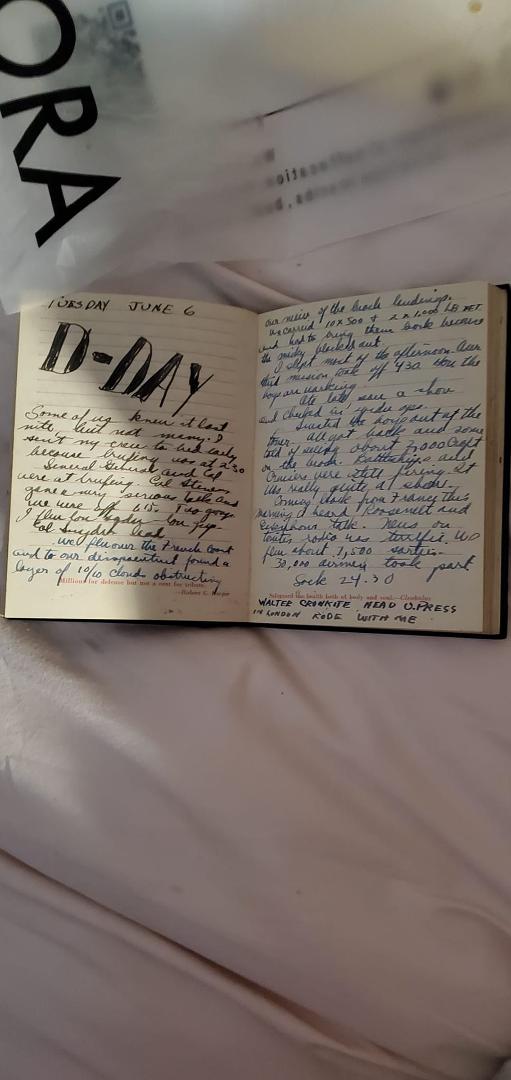 ORA
TUESDAY JUNE 6
D-DAY
Some of us knew it last
nite but not many. I
sent my crew to bed early
because briefing was at 2:30
General and Col
were at briefing. Col
gave a very serious talk and
we were off 615. Two groups
I flew for
Col lead
We flew over the French coast
and to our disappointment found a
layer of 10/10 clouds obstructing
Millions for defense but not a cent for tribute.
—Robert G. Harper
our view of the beach landings.
We carried 10x500 & 2x1,000 LB
and had to bring them back because
the
I slept most of the afternoon. Our
third mission took off 430. How the
boys are working.
Ate late saw a show
and checked in ops.
the boys out at the
tower. All got back and some
told of seeing about 2,000 craft
on the beach. Battleships and
Cruisers were still firing. It
was really quite a show.
Coming back from France this
morning I heard Roosevelt and
Eisenhower talk. News on
radio was terrific. We
flew about 7,500 sorties.
30,000 airmen took part
Sack 24:30
Safeguard the health both of body and soul.—Cleobulus
WALTER CRONKITE HEAD U.PRESS
IN LONDON RODE WITH ME